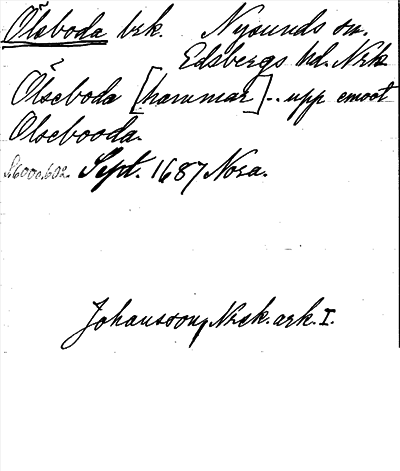 Ölsboda brk. Nysunds sn.
Edsbergs hd. Nrk
Ölseboda [hammar] .. upp emoot
Olsebooda.
S. 600 o. 602. Sept. 1687 Nora.
Johansson, Nrsk. ark. I.